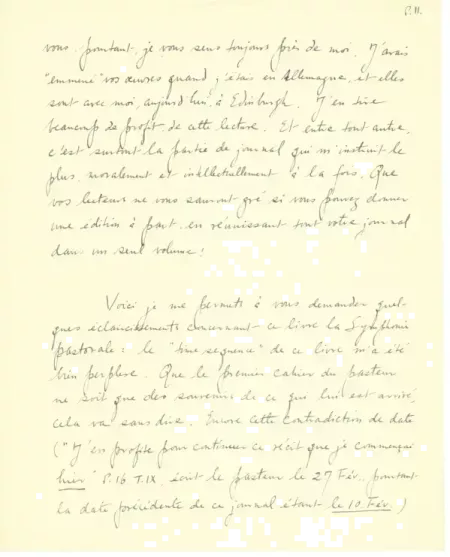 P.II.
vous. pourtant, je vous sens toujours près de moi. J'avais
"emmené" vos œuvres quand j'étais en Allemagne, et elles
sont avec moi, aujourd'hui, à Edinburgh. J'en tire
beaucoup de profit de cette lecture. Et entre tout autre,
c'est surtout la partie de journal qui m'instruit le
plus, moralement et intellectuellement à la fois. Que
vos lecteurs ne vous sauront gré si vous pouvez donner
une édition à part, en réunissant tout votre journal
dans un seul volume!
Voici je me permets à vous demander quel-
ques éclaircissements concernant ce livre la Symphonie
pastorale: le "time sequence" de ce livre m'a été
bien perplexe. Que le premier cahier du pasteur
ne soit que des souvenirs de ce que lui est arrivé,
cela va sans dire. Encore cette contradiction de date
("J'en profite pour continuer ce récit que je commençai
hier" P.16 T.IX, écrit le pasteur le 27 Fév., pourtant
la date précédente de ce journal étant le 10 Fév.)